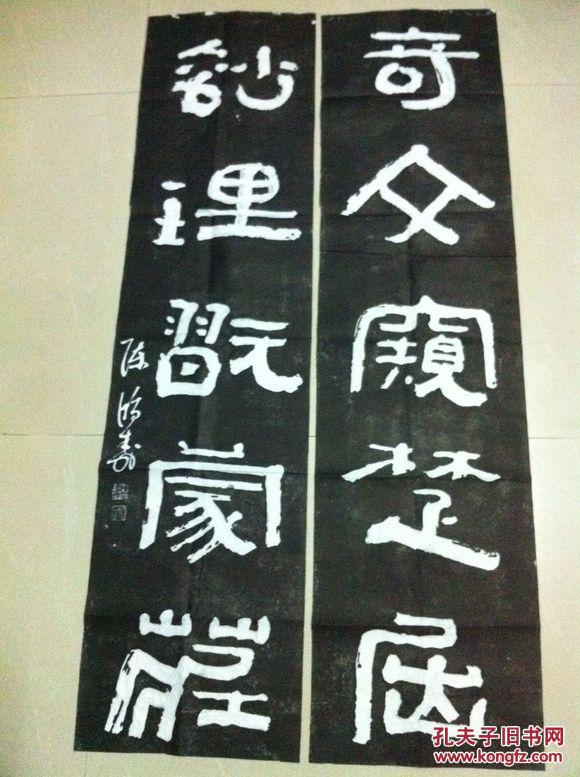 奇文窺楚屈
玅理翫蒙莊
陳鴻壽
孔夫子旧书网
www.kongfz.com